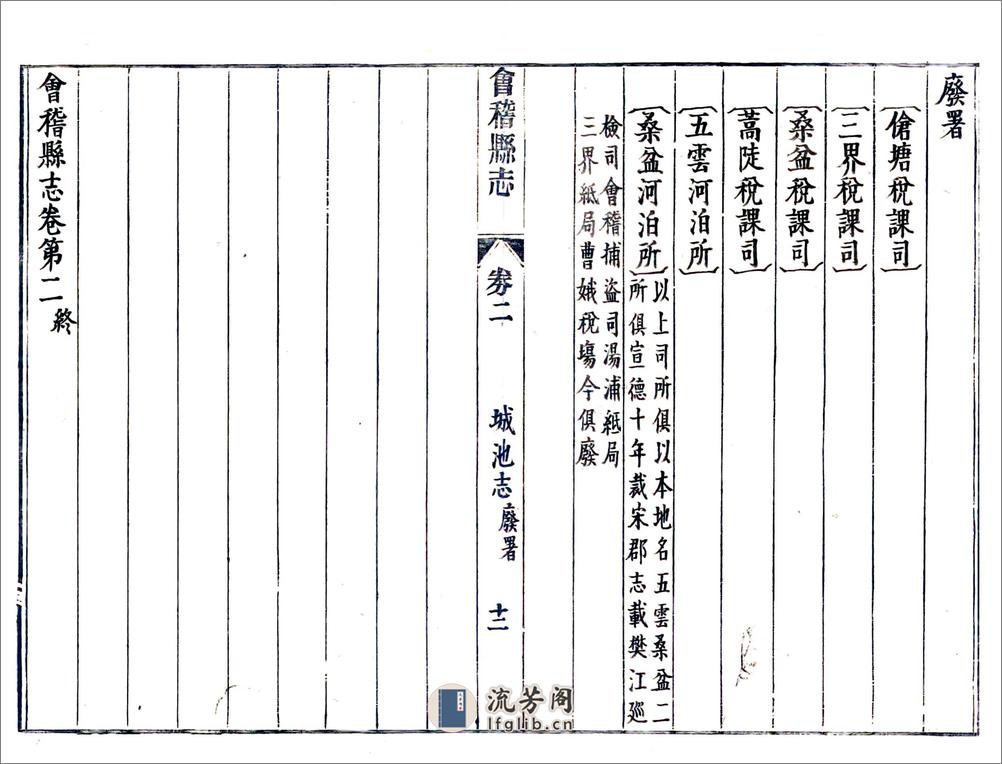 廢署
〔傖塘稅課司〕
〔三界稅課司〕
〔桑盆稅課司〕
〔蒿陡稅課司〕
〔五雲河泊所〕
〔桑盆河泊所〕
以上司所俱以本地名五雲桑盆二
所俱宣德十年裁宋郡志載樊江廵
檢司會稽捕盜司湯浦紙局
三界紙局曹娥稅塲今俱廢
會稽縣志
卷二
城池志
廢署
十二
會稽縣志卷第二終
流芳阁
lfglib.cn